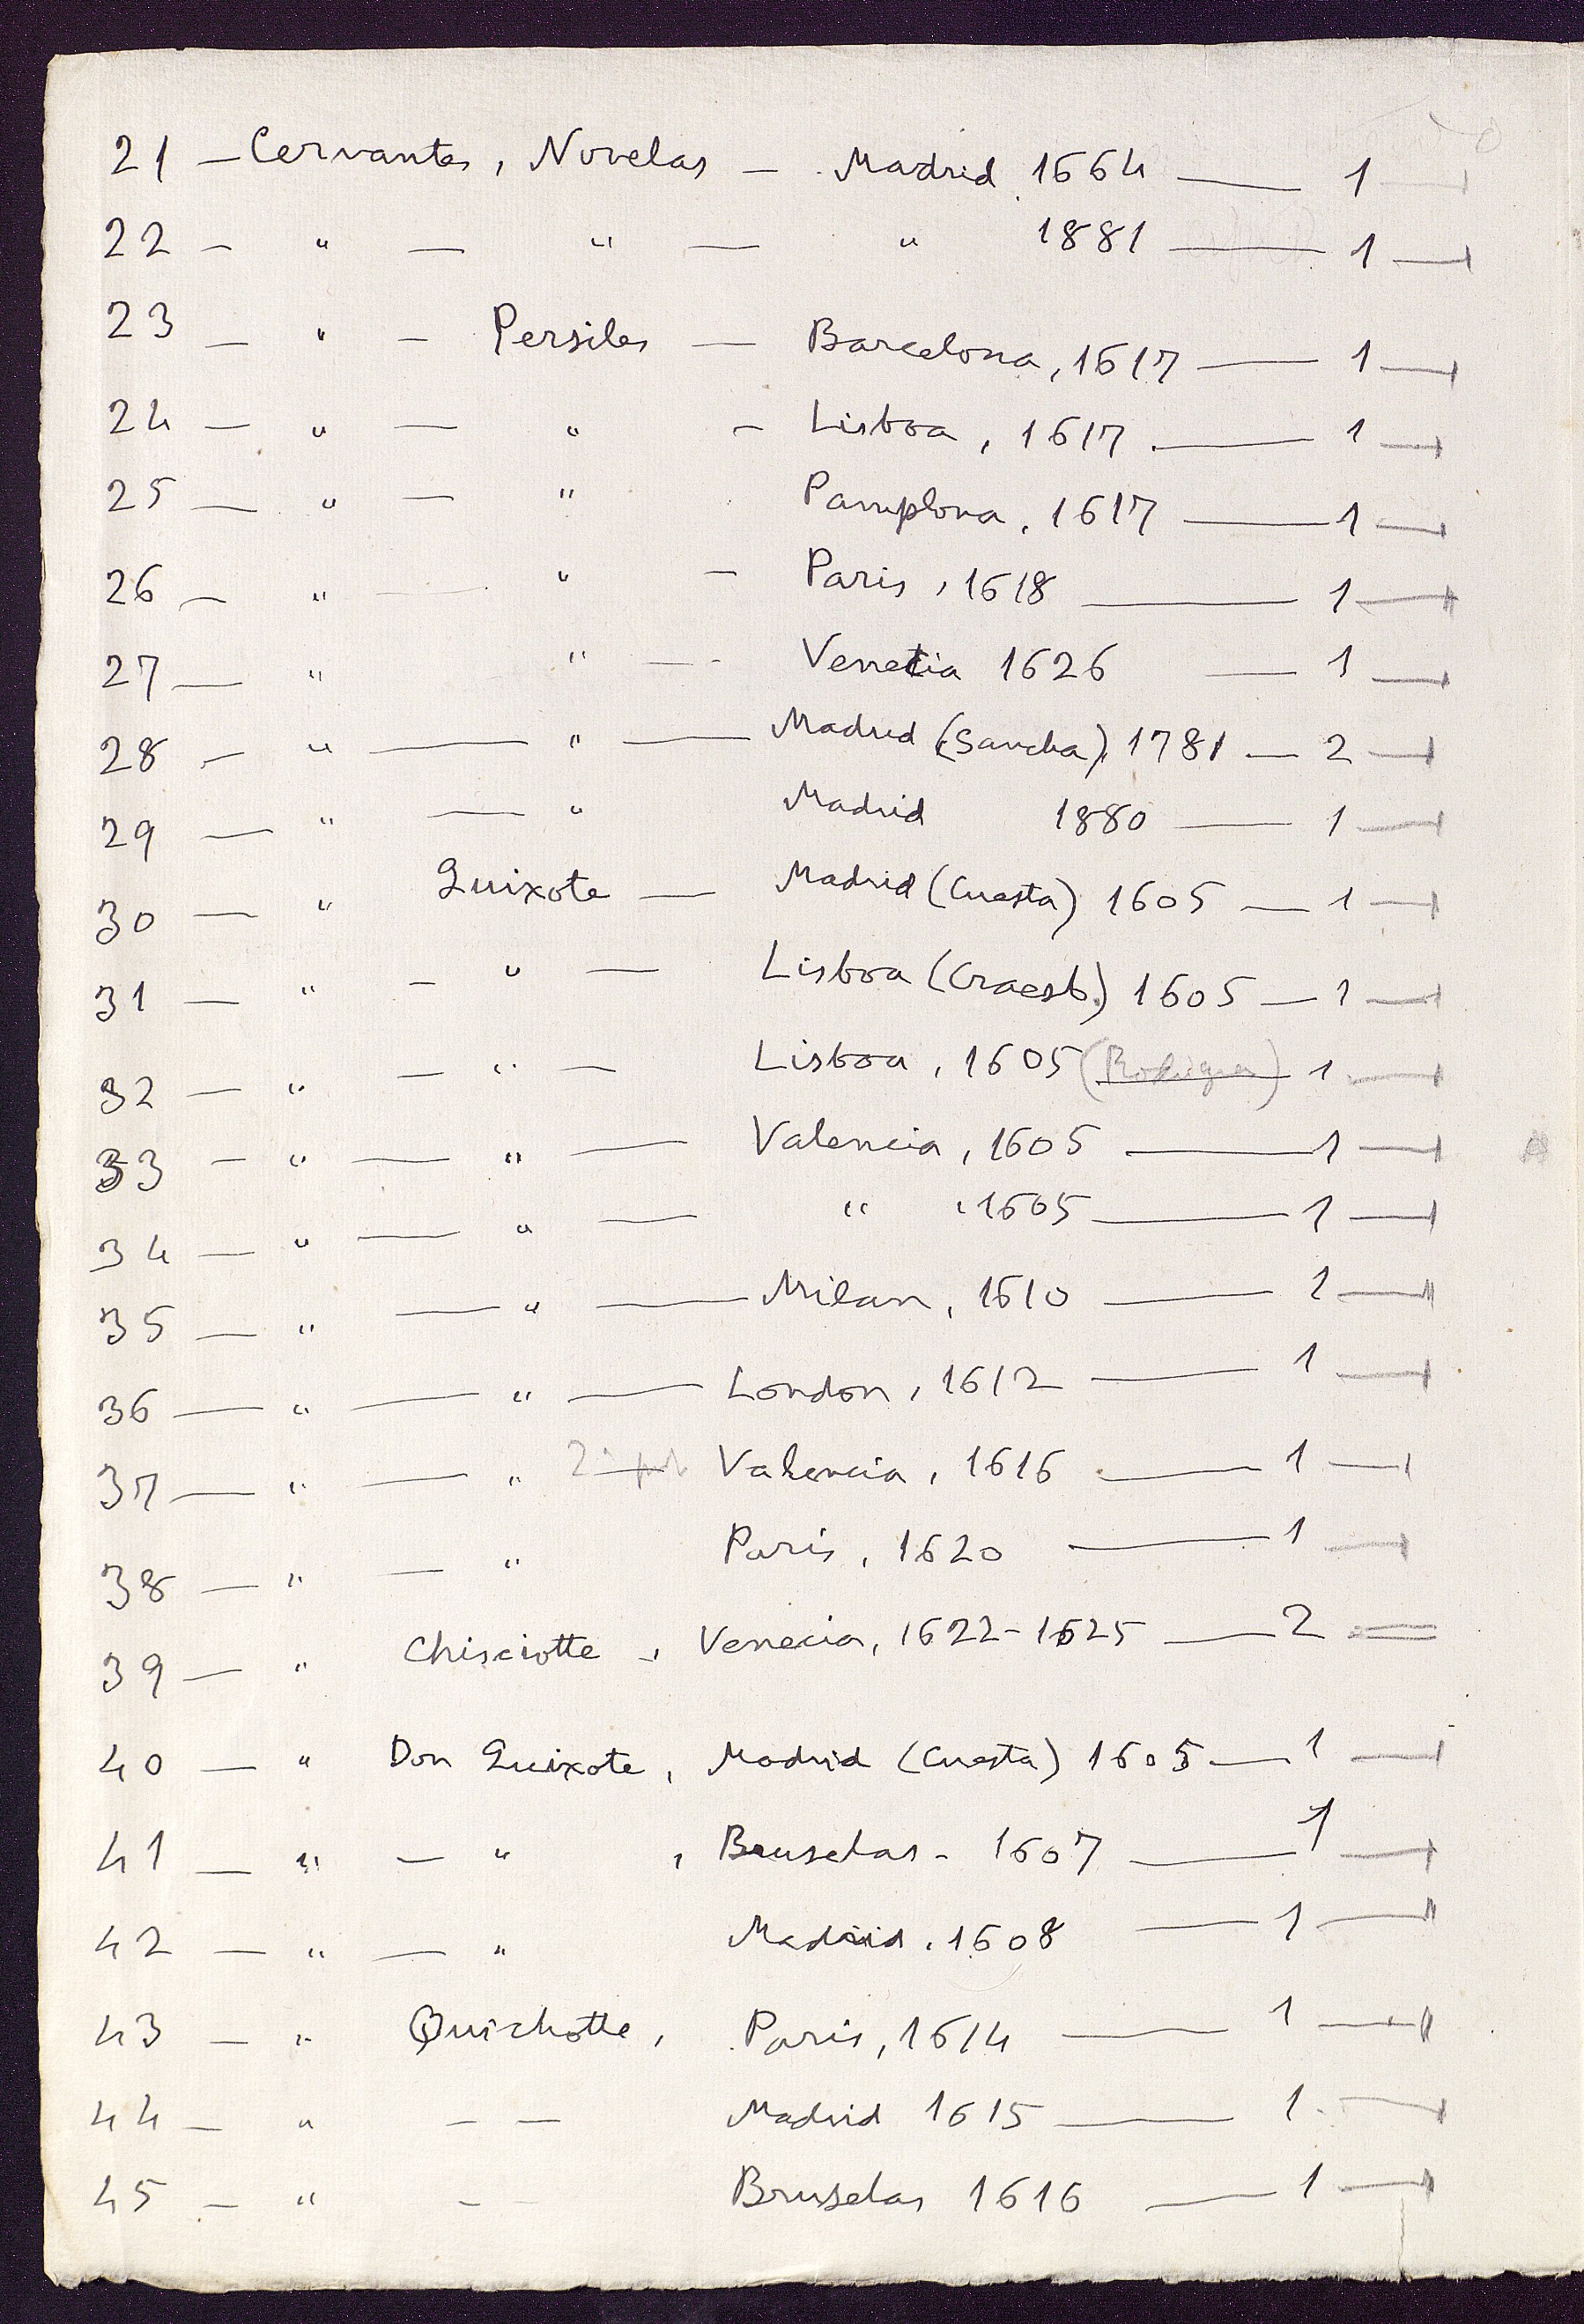 21 — Cervantes, Novelas — Madrid 1664 — 1
22 — " — " — " 1881 — 1
23 — " — Persiles — Barcelona, 1617 — 1
24 — " — " — Lisboa, 1617 — 1
25 — " — " Pamplona, 1617 — 1
26 — " — " — Paris, 1618 — 1
27 — " " — Venetia 1626 — 1
28 — " — " — Madrid (Sancha), 1781 — 2
29 — " — " Madrid 1880 — 1
30 — " Quixote — Madrid (Cuesta) 1605 — 1
31 — " — " — Lisboa (Craesb.) 1605 — 1
32 — " — " — Lisboa, 1605 (Rodriguez) 1
33 — " — " — Valencia, 1605 — 1
34 — " — " — " , 1605 — 1
35 — " — " — Milan, 1610 — 1
36 — " — " — London, 1612 — 1
37 — " — " 2ª Valencia, 1616 — 1
38 — " — " Paris, 1620 — 1
39 — " Chisciotte -, Venecia, 1622-1625 — 2
40 — " Don Quixote, Madrid (Cuesta) 1605 — 1
41 — " — " , Bruselas - 1607 — 1
42 — " — " Madrid. 1608 — 1
43 — " Quichotte, Paris, 1614 — 1
44 — " — — Madrid 1615 — 1
45 — " — — Bruselas 1616 — 1